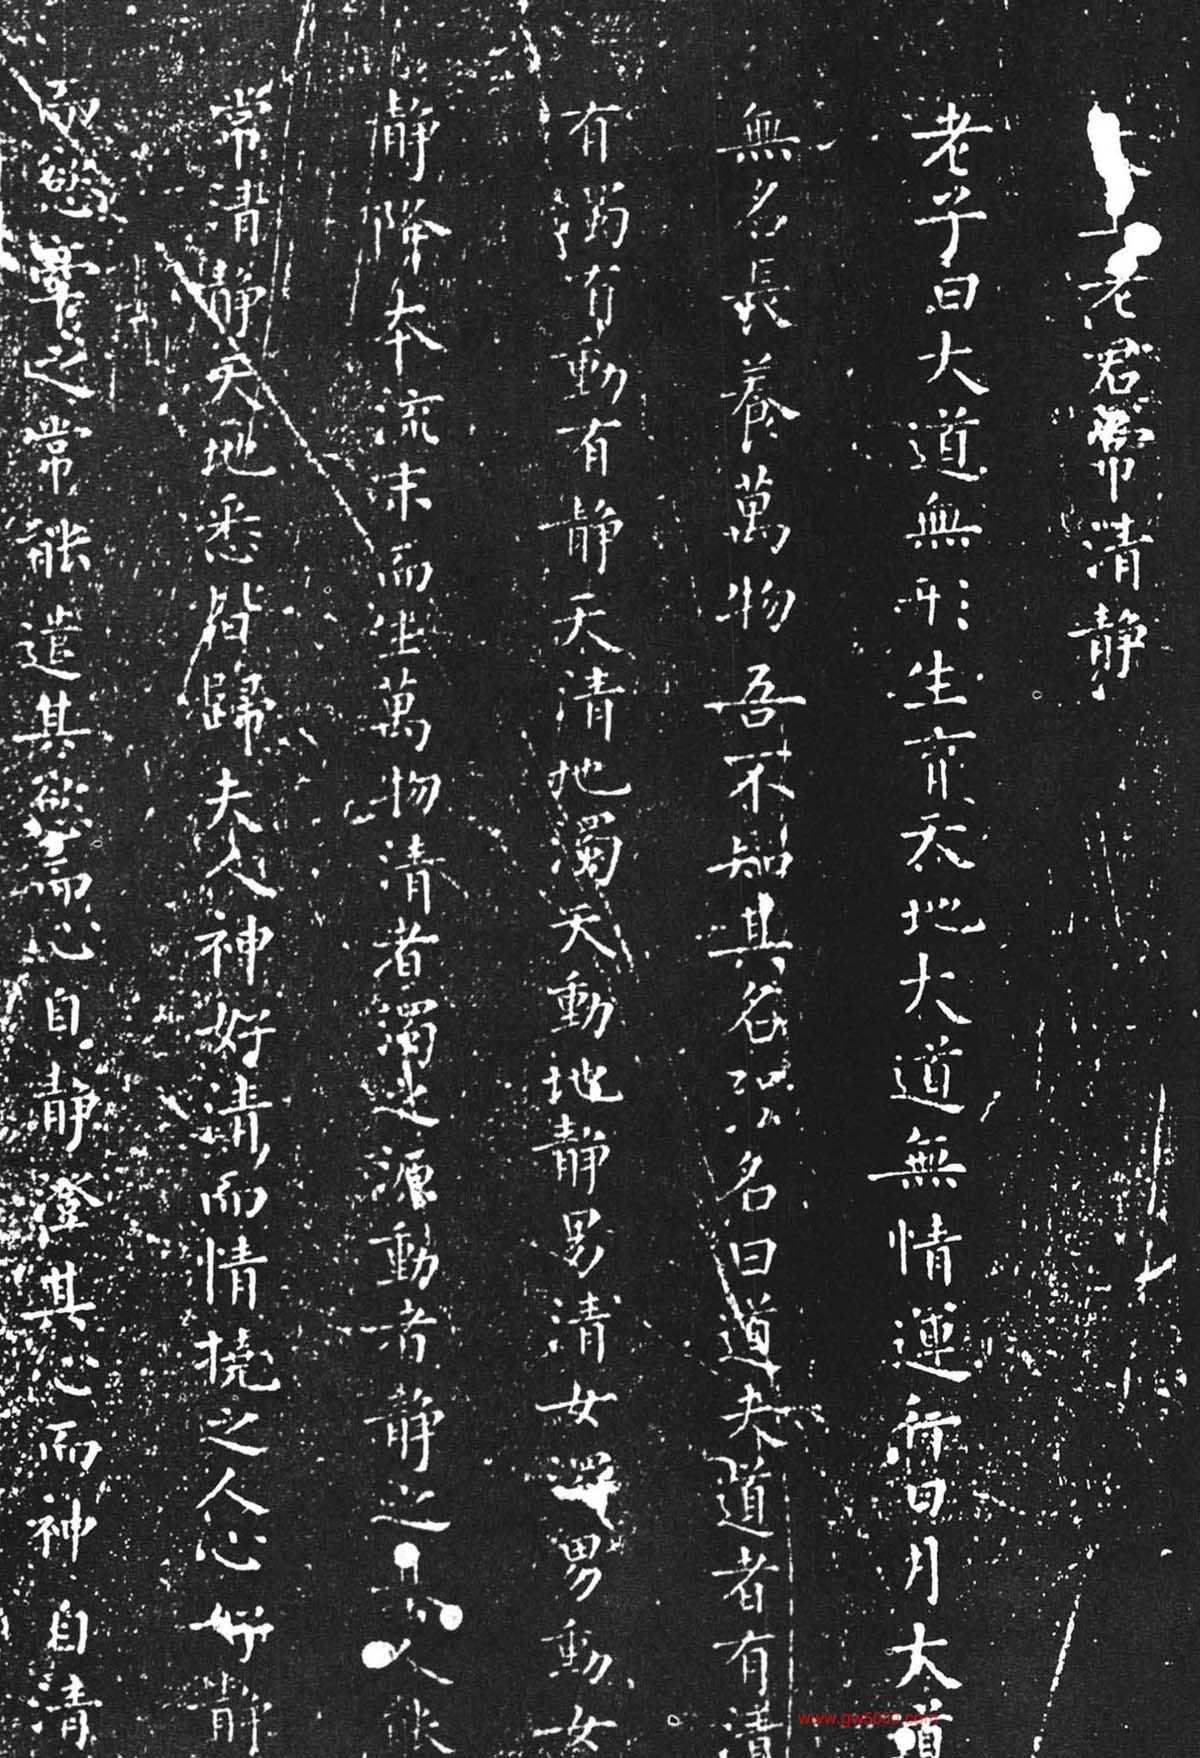 上老君常清静
老子曰大道無形生育天地大道無情運行日月大道
無名長養萬物吾不知其名强名曰道夫道者有清
有濁有動有静天清地濁天動地静男清女濁男動女
静降本流末而生萬物清者濁之源動者静之基人能
常清静天地悉皆歸夫人神好清而情撓之人心好静
而慾牽之常能遣其慾而心自静澄其心而神自清
www.gw5000.com